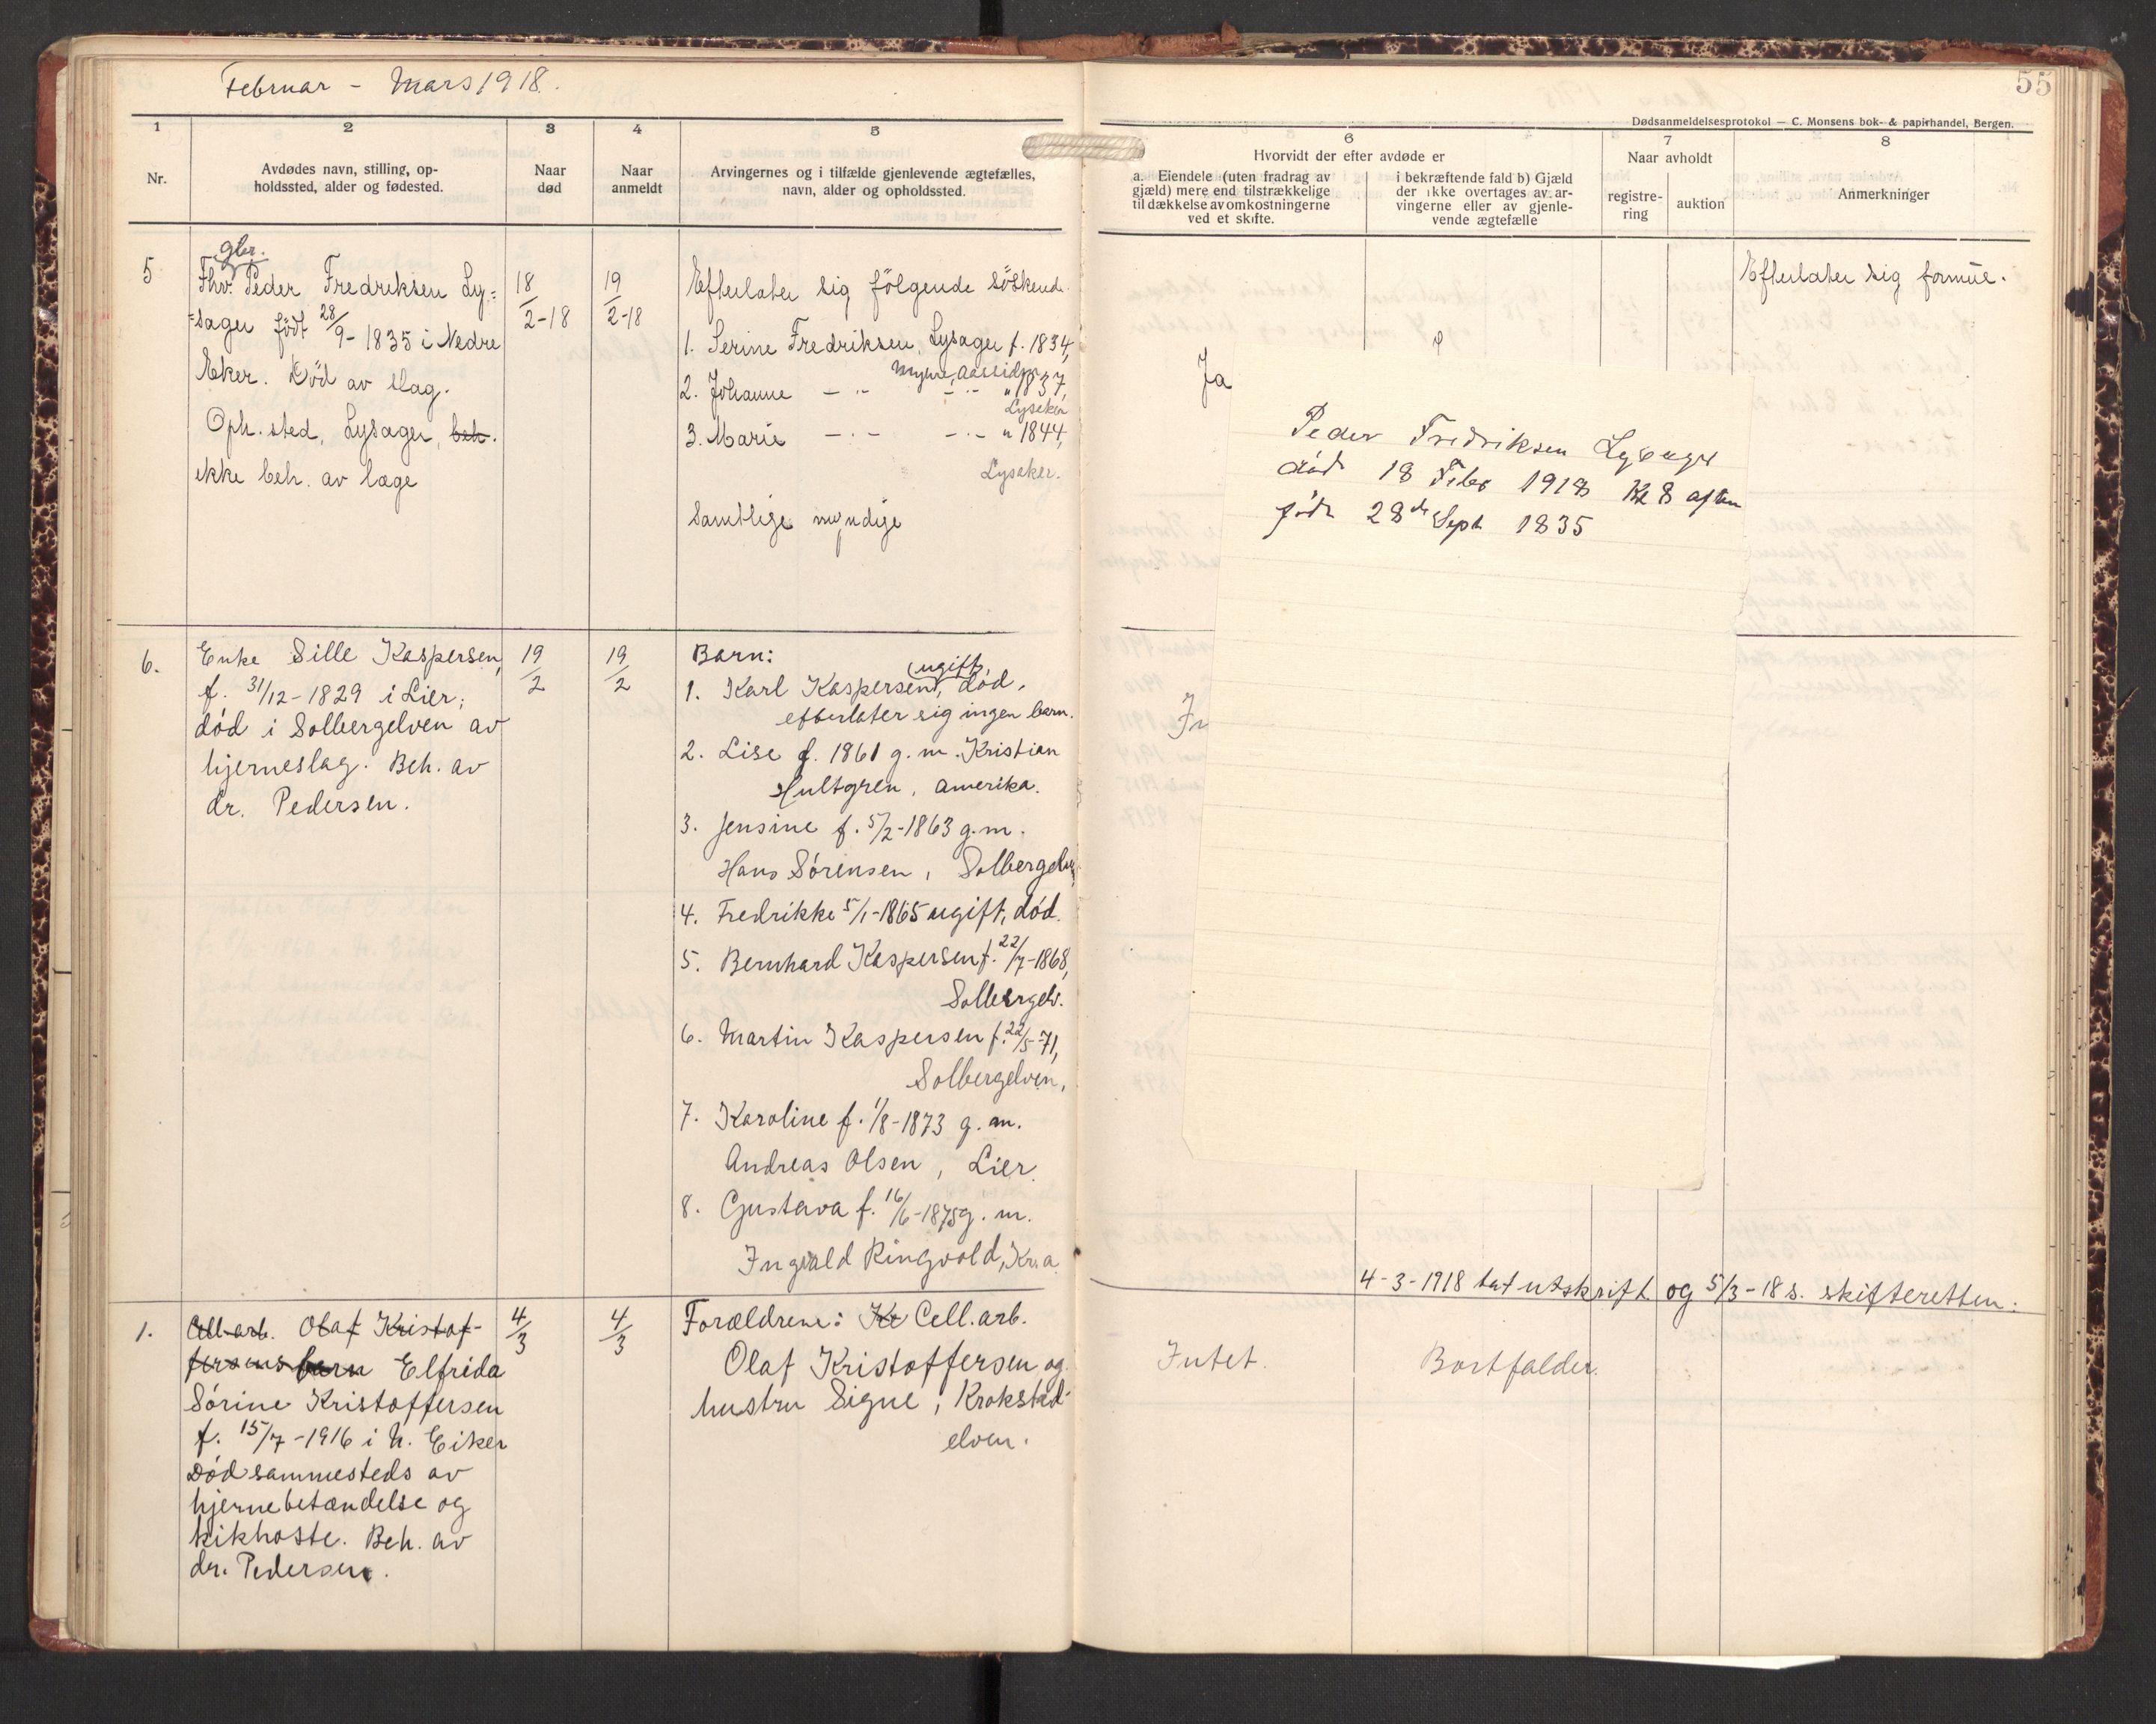 Februar - Mars 1918.
1
2
3
4
5
Nr.
Avdødes navn, stilling, op-
holdssted, alder og fødested.
Naar
død
Naar
anmeldt
Arvingernes og i tilfælde gjenlevende ægtefælles,
navn, alder og opholdssted.
5
gbr.
Fhv. Peder Fredriksen Ly-
=sager født 28/9-1835 i Nedre
Eker. Död av slag.
Oph. sted, Lysager, beh.
ikke beh. av læge
18/2-18
19/2-18
Efterlater sig fölgende söskende.
1. Serine Fredriksen, Lysager f. 1834,
Myhre, Aassiden
2. Johanne -"- -"- " 1837,
Lyseker
3. Marie -"- -"- " 1844,
Lyseker.
Samtlige myndige
6.
Enke Sille Kaspersen,
f. 31/12-1829 i Lier;
død i Solbergelven av
hjerneslag. Beh. av
dr. Pedersen.
19/2
19/2
Barn:
1. Karl Kaspersen, ugift, død,
efterlater sig ingen barn.
2. Lise f. 1861 g. m. Kristian
Hultgren, Amerika.
3. Jensine f. 5/2-1863 g.m.
Hans Sørensen, Solbergelven
4. Fredrikke 5/1-1865 ugift, død.
5. Bernhard Kaspersen f. 22/7-1868,
Solbergelv.
6. Martin Kaspersen f. 22/5-71,
Solbergelven,
7. Karoline f. 1/8-1873 g. m.
Andreas Olsen, Lier.
8. Gustava f. 16/6-1875 g. m.
Ingvald Ringvold, Kr.a
1.
Cell.arb. Olaf Kristof-
fersens barn Elfrida
Sørine Kristoffersen
f. 15/7-1916 i N. Eiker
Død sammesteds av
hjernebetændelse og
kikhoste. Beh. av
dr. Pedersen.
4/3
4/3
Forældrene: Kr Cell.arb.
Olaf Kristoffersen og
hustru Signe, Krokstad-
elven.
55
Dødsanmeldelsesprotokol — C. Monsens bok- & papirhandel, Bergen.
6
7
8
Hvorvidt der efter avdøde er
a. Eiendele (uten fradrag av
gjæld) mere end tilstrækkelige
til dækkelse av omkostningerne
ved et skifte.
i bekræftende fald b) Gjæld
der ikke overtages av ar-
vingerne eller av gjenle-
vende ægtefælle
Naar avholdt
registre-
ring
auktion
Anmerkninger
Efterlater sig formue.
Ja
Peder Fredriksen Lysager
död 18 Febr 1918 Kl 8 aften
född 28de Sept 1835
In
4-3-1918 tat utskrift og 5/3-18 s. skifteretten.
Intet.
Bortfalder.